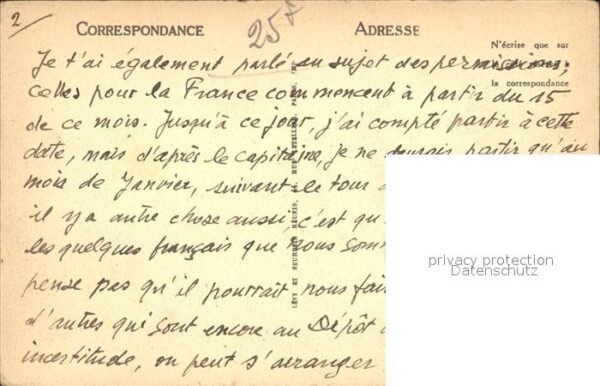 2
CORRESPONDANCE
ADRESSE
25f
N'écrire que sur
la correspondance
Je t'ai également parlé au sujet des permissions;
celles pour la France commencent à partir du 15
de ce mois. Jusqu'à ce jour, j'ai compté partir à cette
date, mais d'après le capitaine, je ne pourrais partir qu'au
mois de Janvier, suivant le tour
il y a autre chose aussi, c'est qu
les quelques français que nous som
pense pas qu'il pourrait nous fai
d'autres qui sont encore au Dépôt
incertitude, on peut s'arranger
LÉVY ET NEURDEIN RÉUNIS, PARIS
privacy protection
Datenschutz